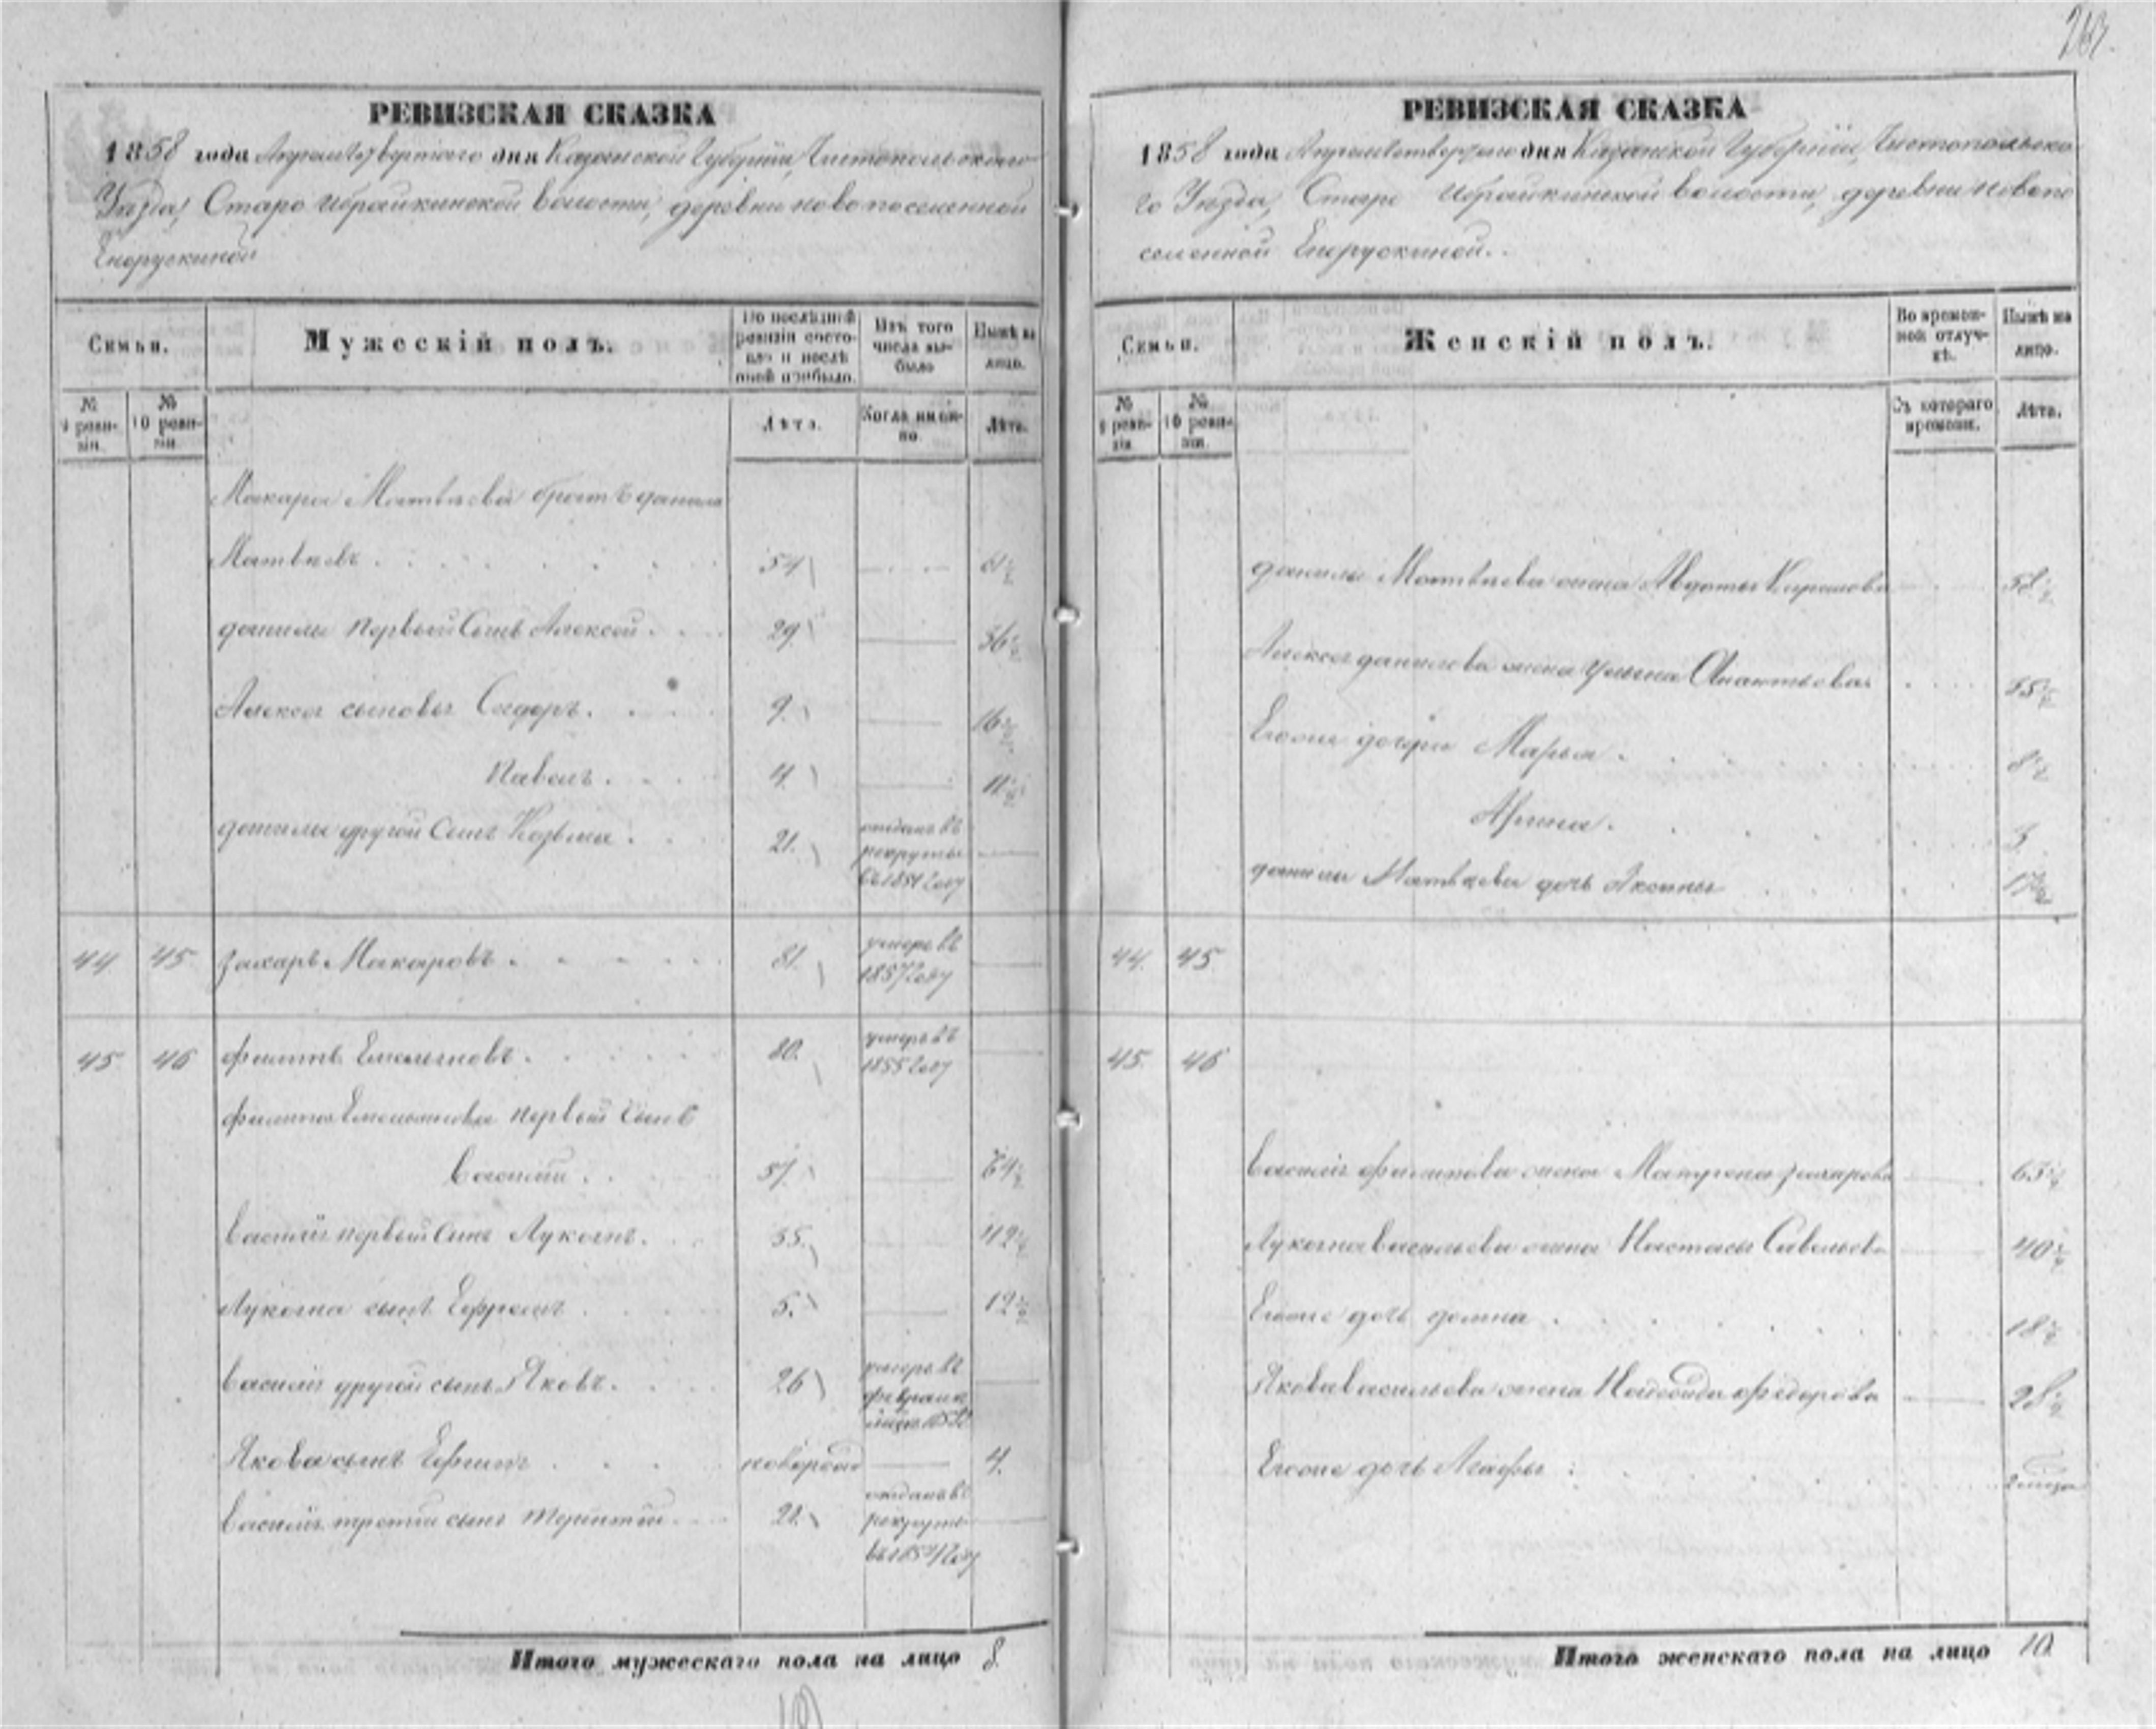 263.
РЕВИЗСКАЯ СКАЗКА
1858 года Апреля четвертаго дня Казанской Губерніи, Чистопольскаго
Уѣзда, Старо Ибрайкинской волости, деревни новопоселенной
Енорускиной
Семьи.
Мужескій полъ.
По послѣдней ревизіи состояло и послѣ оной прибыло.
Изъ того числа выбыло
Нынѣ на лицо.
№ 9 ревизіи.
№ 10 ревизіи.
Лѣта.
Когда именно.
Лѣта.
Макара Матвѣева братъ данила
Матвѣевъ 54
данилы первый Сынъ Алексей 29 36½
Алексея сыновья Сидоръ. 9. 16½
Павелъ. 4. 11½
данилы другой Сынъ Козьма 21. отданъ въ рекруты въ 1854 году
44 45 Захаръ Макаровъ 81. умеръ въ 1857 году
45 46 Филиппъ Емельяновъ 80. умеръ въ 1855 году
Филиппа Емельянова первый Сынъ
Василій. 57. 64½
Василія первый Сынъ Лукоянъ. 35. 42½
Лукояна сынъ Ефремъ 5. 12½
Василія другой сынъ Яковъ. 26 умеръ въ февралѣ
Якова сынъ Ефимъ новорож 4.
Василія третій сынъ Терентій 21. отданъ въ рекруты въ 1854 году
Итого мужескаго пола на лицо 8.
РЕВИЗСКАЯ СКАЗКА
1858 года Апреля четвертаго дня Казанской Губерніи, Чистопольска
го Уѣзда, Старо Ибрайкинской волости, деревни новопо
селенной Енорускиной.
Семьи.
Женскій полъ.
Во временной отлучкѣ.
Нынѣ на лицо.
№ 9 ревизіи.
№ 10 ревизіи.
Съ котораго времени.
Лѣта.
данилы Матвѣева жена Авдотья 58½
Алексея данилова жена Ульяна 35½
Ево дочери Марья. 8½
Арина. 3
данилы Матвѣева дочь 17½
44. 45.
45. 46
Василія Филипова жена Матрена Захарова 65½
Лукояна Васильева жена Настасья Савельева 40½
Ево дочь домна 18½
Якова Васильева жена федорова 28½
Ево дочь Агафья
Итого женскаго пола на лицо 10.